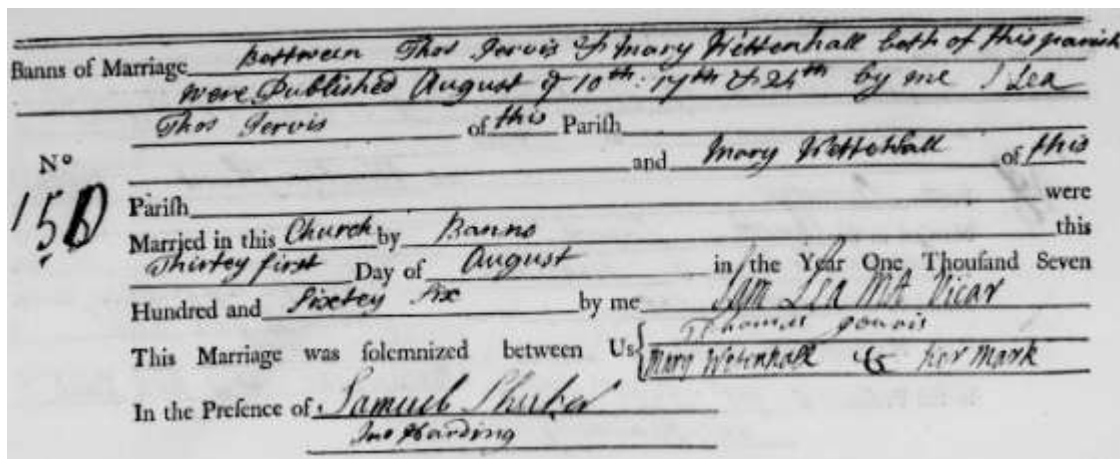 Banns of Marriage Bettween Thos Jervis & Mary Wettenhall both of this parish
were Published August ye 10th: 17th & 24th by me S Lea
Thos Jervis of this Pariſh
No
and Mary Wettehall of this
150
Pariſh were
Married in this Church by Banns this
Thirtey first Day of August in the Year One Thouſand Seven
Hundred and Sixtey Six by me Sam Lea MA Vicar
Thomas
This Marriage was ſolemnized between Us Mary Wetenhall her mark
In the Preſence of Samuel
Jno Harding